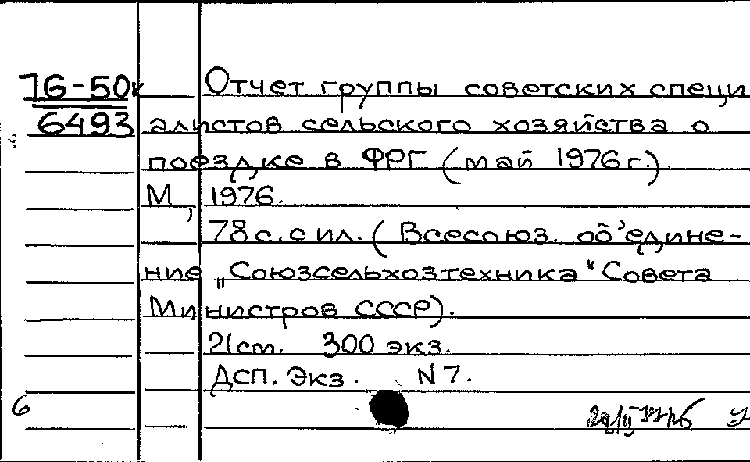 76-50к Отчет группы советских специ
6493 алистов сельского хозяйства о
поездке в ФРГ (май 1976 г.)
М, 1976.
78 с. с ил. (Всесоюз. об'едине-
ние „Союзсельхозтехника“ Совета
Министров СССР).
21 см. 300 экз.
ДСП. Экз. N 7.
6